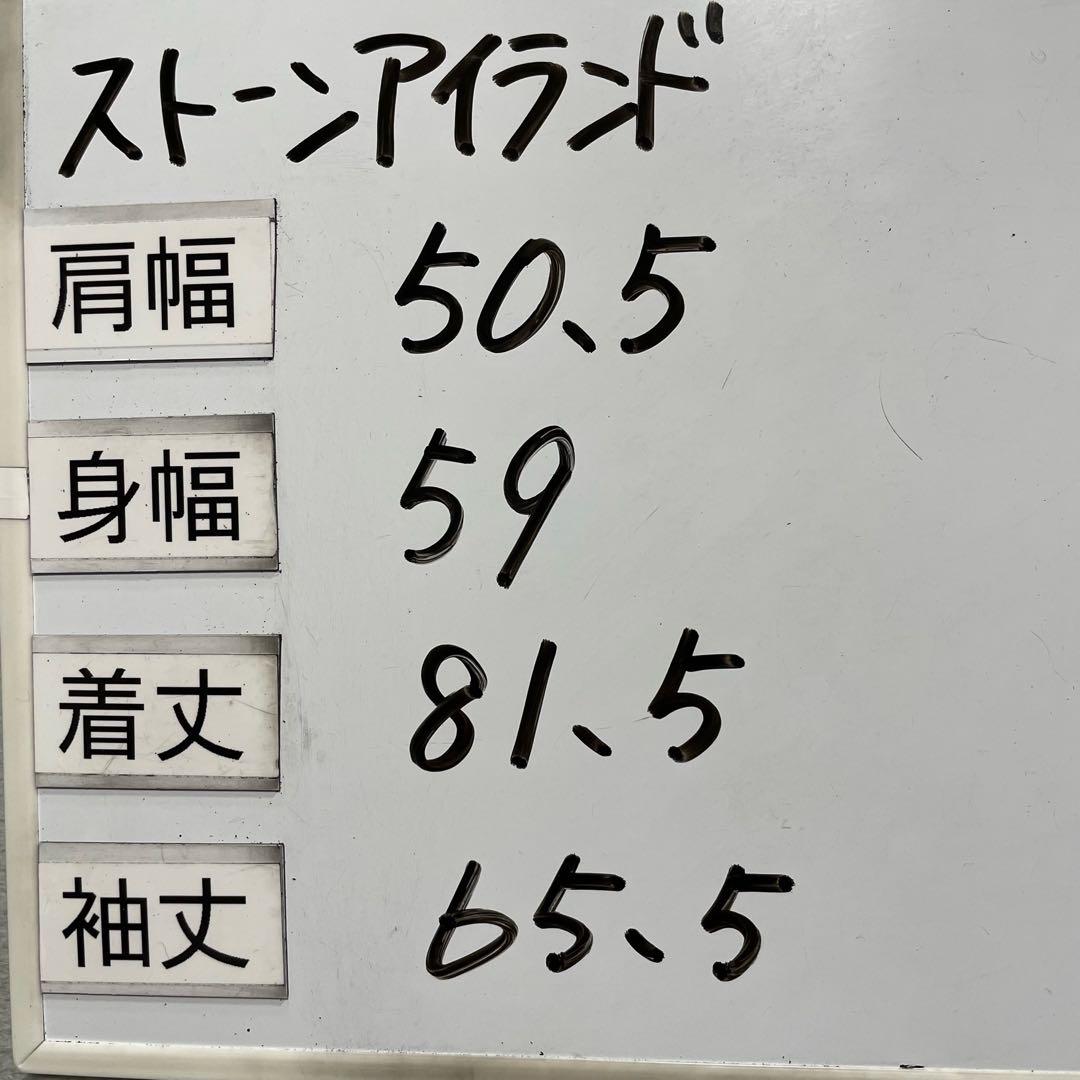 ストーンアイランド
肩幅 50、5
身幅 59
着丈 81、5
袖丈 65、5